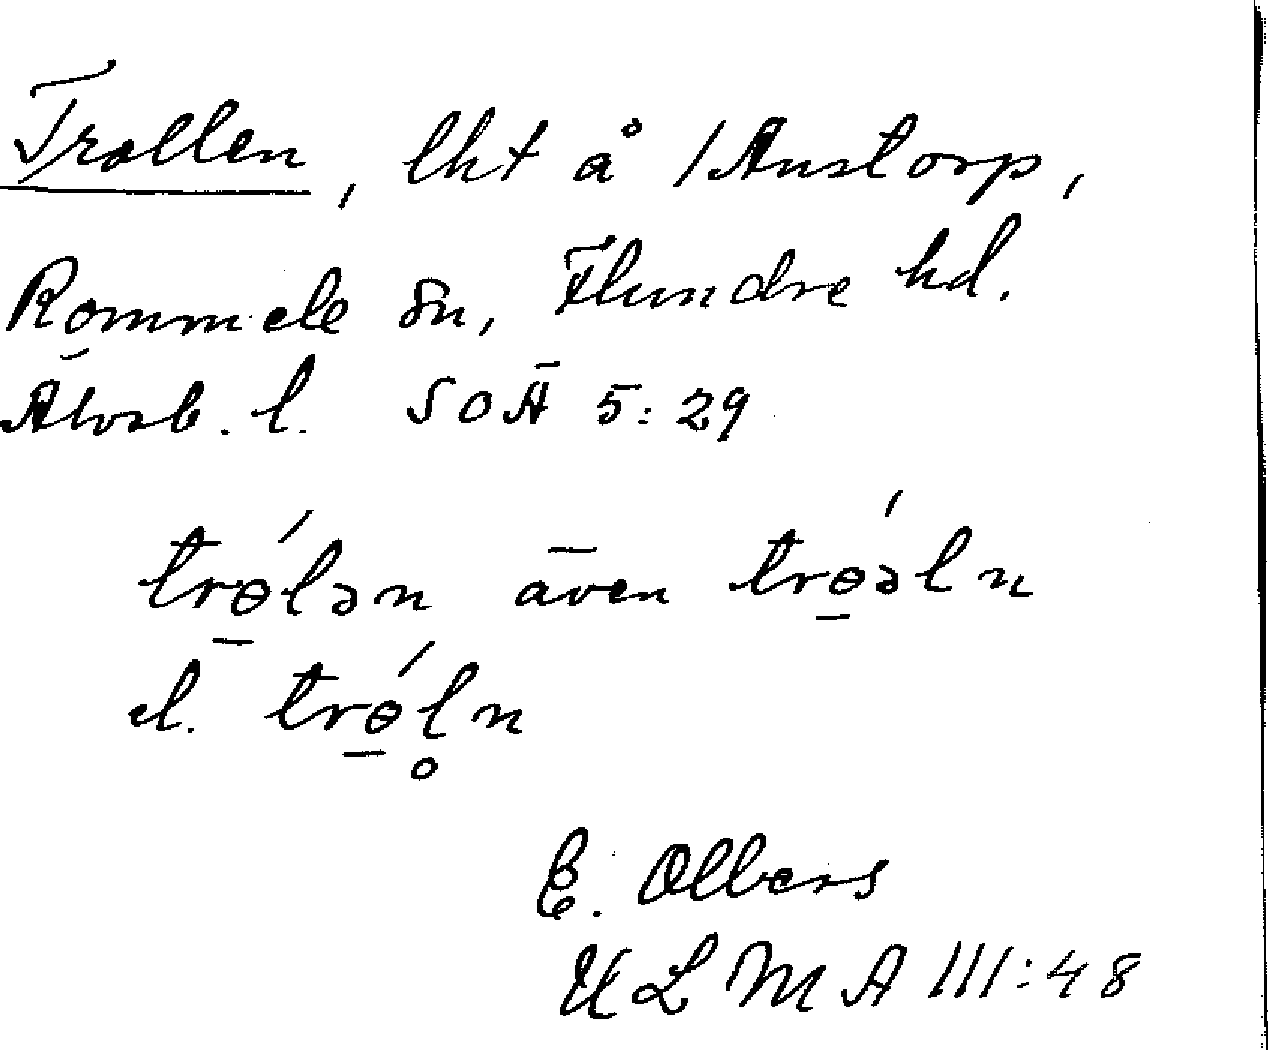 Trollen, lht å /Anstorp,
Rommele sn, Flundre hd.
Älvsb. l. SOÄ 5:29
trɵ̱́lən även trɵ̱́əln
el. trɵ̱́l̥n
E. Olbers
ULMA III:48